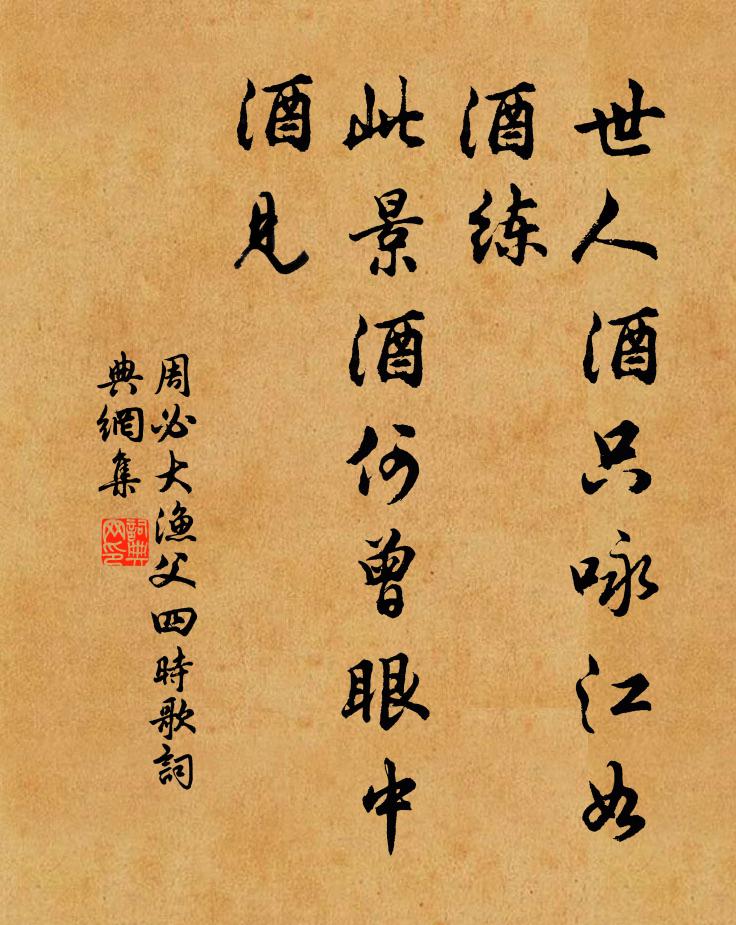 世人酒只咏江如
酒练
此景酒何曾眼中
酒见
周必大渔父四時歌詞
典網集
詞典網印